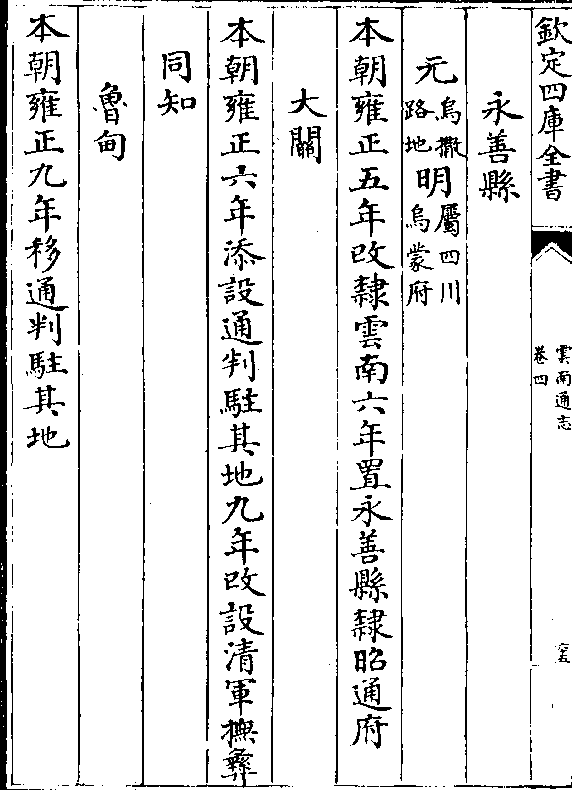 欽定四庫全書
雲南通志
卷四
永善縣
元烏撒路地明屬四川烏蒙府
本朝雍正五年改隸雲南六年置永善縣隸昭通府
大關
本朝雍正六年添設通判駐其地九年改設清軍撫彝
同知
魯甸
本朝雍正九年移通判駐其地